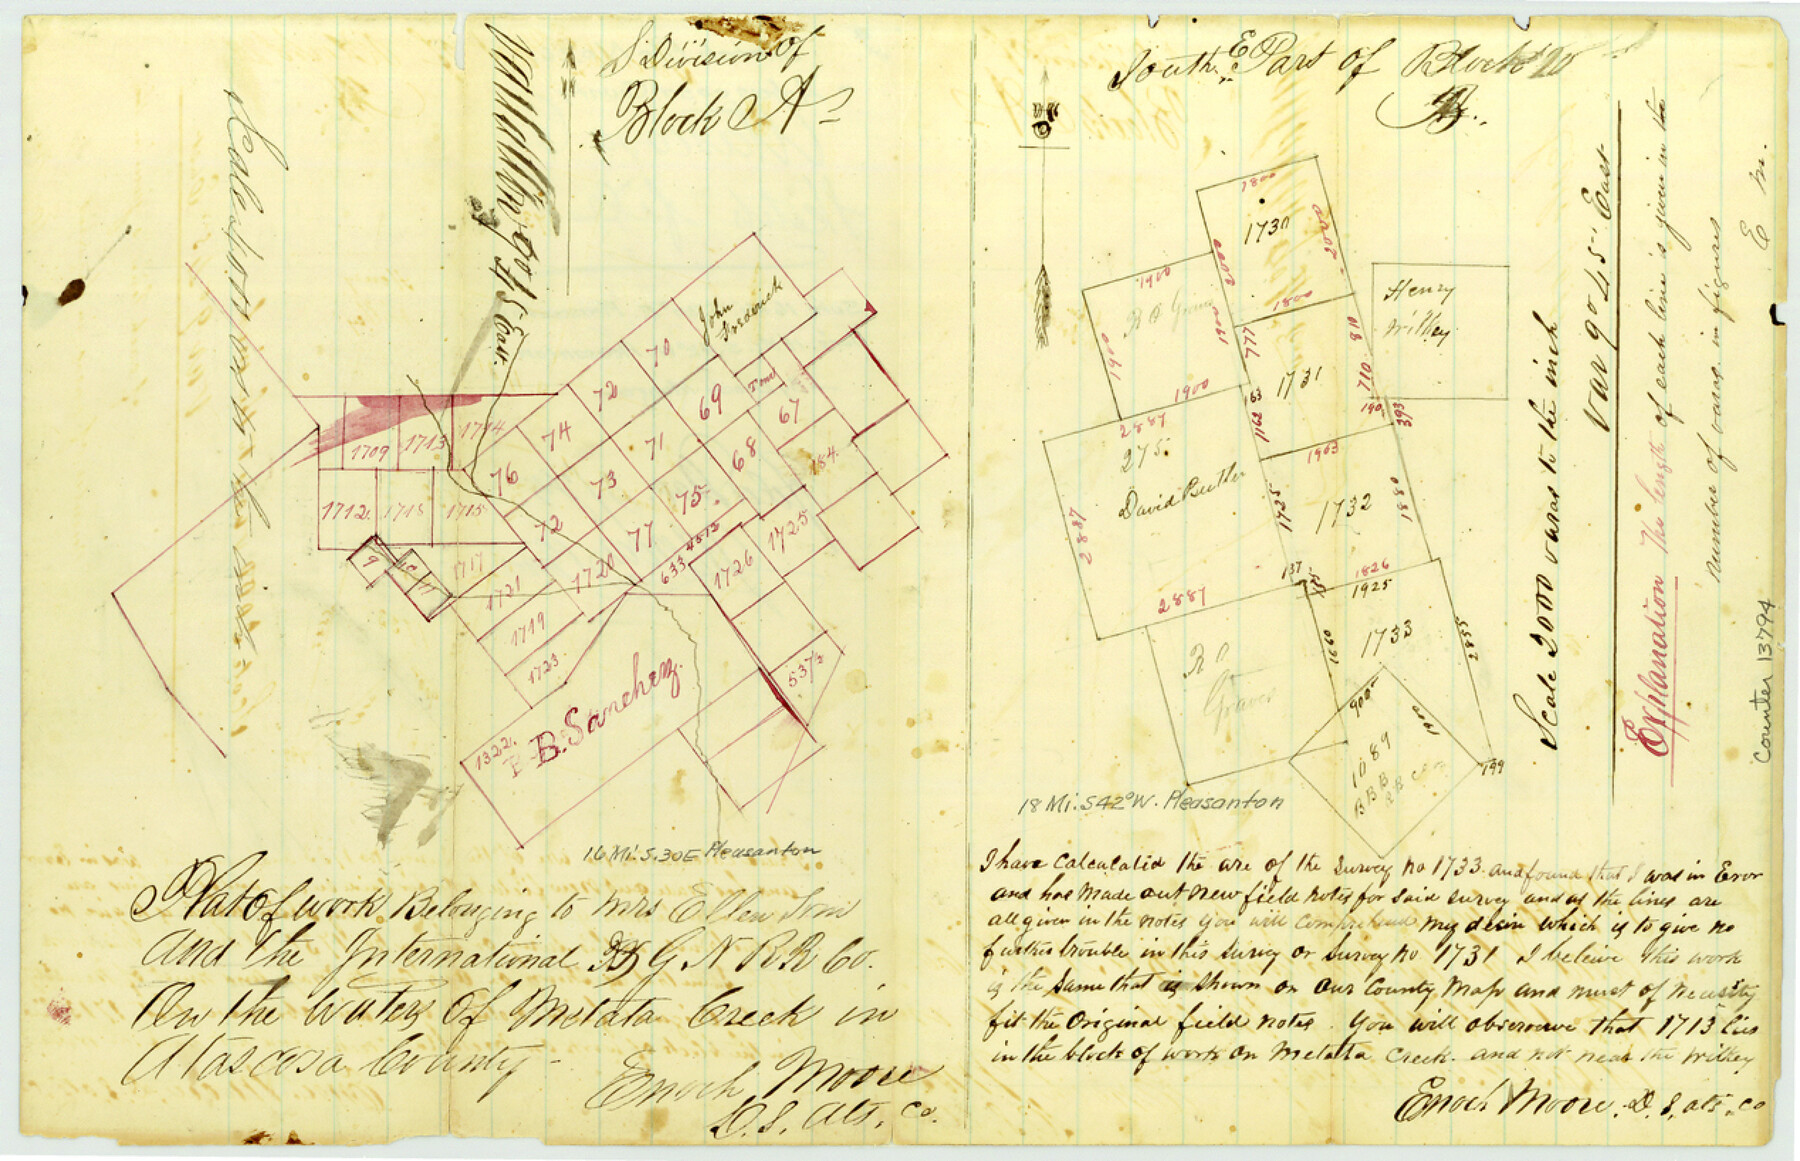 S. Division of
Block A
Variation 9° 45' East.
Scale 2000 varas to the inch
John Frederick
70
72
69
67
Tom
74
71
68
184
76
73
75
72
77
633 4512
1725
1726
1709
1713
1714
1712
1718
1715
9
10
11
1717
1721
1720
1719
1723
537½
1322.
B. Sanchez.
16 Mi. S. 30 E Pleasanton
Plat of work Belonging to Mrs Ellen Tom
And the International & G N R R Co.
On the waters of Metata Creek in
Atascosa County -
Enoch Moore
D. S. Ats. Co.
South E Part of Block
B.
1800
1730
2000
2000
1900
R O
1900
1900
1900
1800
777
1731
810
710
190
393
163
1162
Henry
Wilkey
2887
275.
David Butler
2887
2887
1903
1725
1732
1880
137
185
1826
1925
1733
1660
2855
R O
Graves
900
1900
199
1089
B B B
& C
18 Mi. S 42° W. Pleasanton
Scale 2000 varas to the inch
Var 9° 45" East
Explanation The length of each line is given in the
number of varas in figures
E M.
Counter 13794
I have calculatid the are of the survey no 1733 and found that I was in Eror
and has made out new field notes for said survey and as the lines are
all given in the notes you will comprehend my desire which is to give no
further trouble in this survey or survey no 1731 I beleive this work
is the same that is shown on our County map and must of necessity
fit the Original field notes. You will observe that 1713 lies
in the block of work on Metata Creek. and not near the Wilkey
Enoch Moore. D. S. Ats. Co